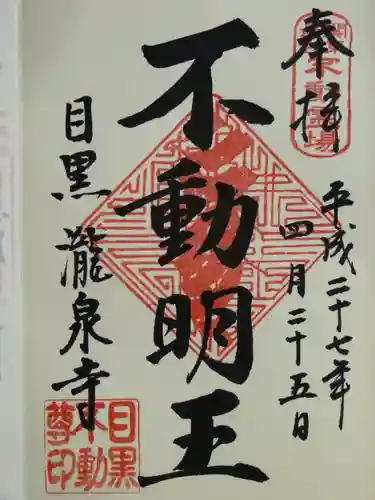 奉拝
平成二十七年
四月二十五日
不動明王
目黒瀧泉寺
目黒
不動
尊印